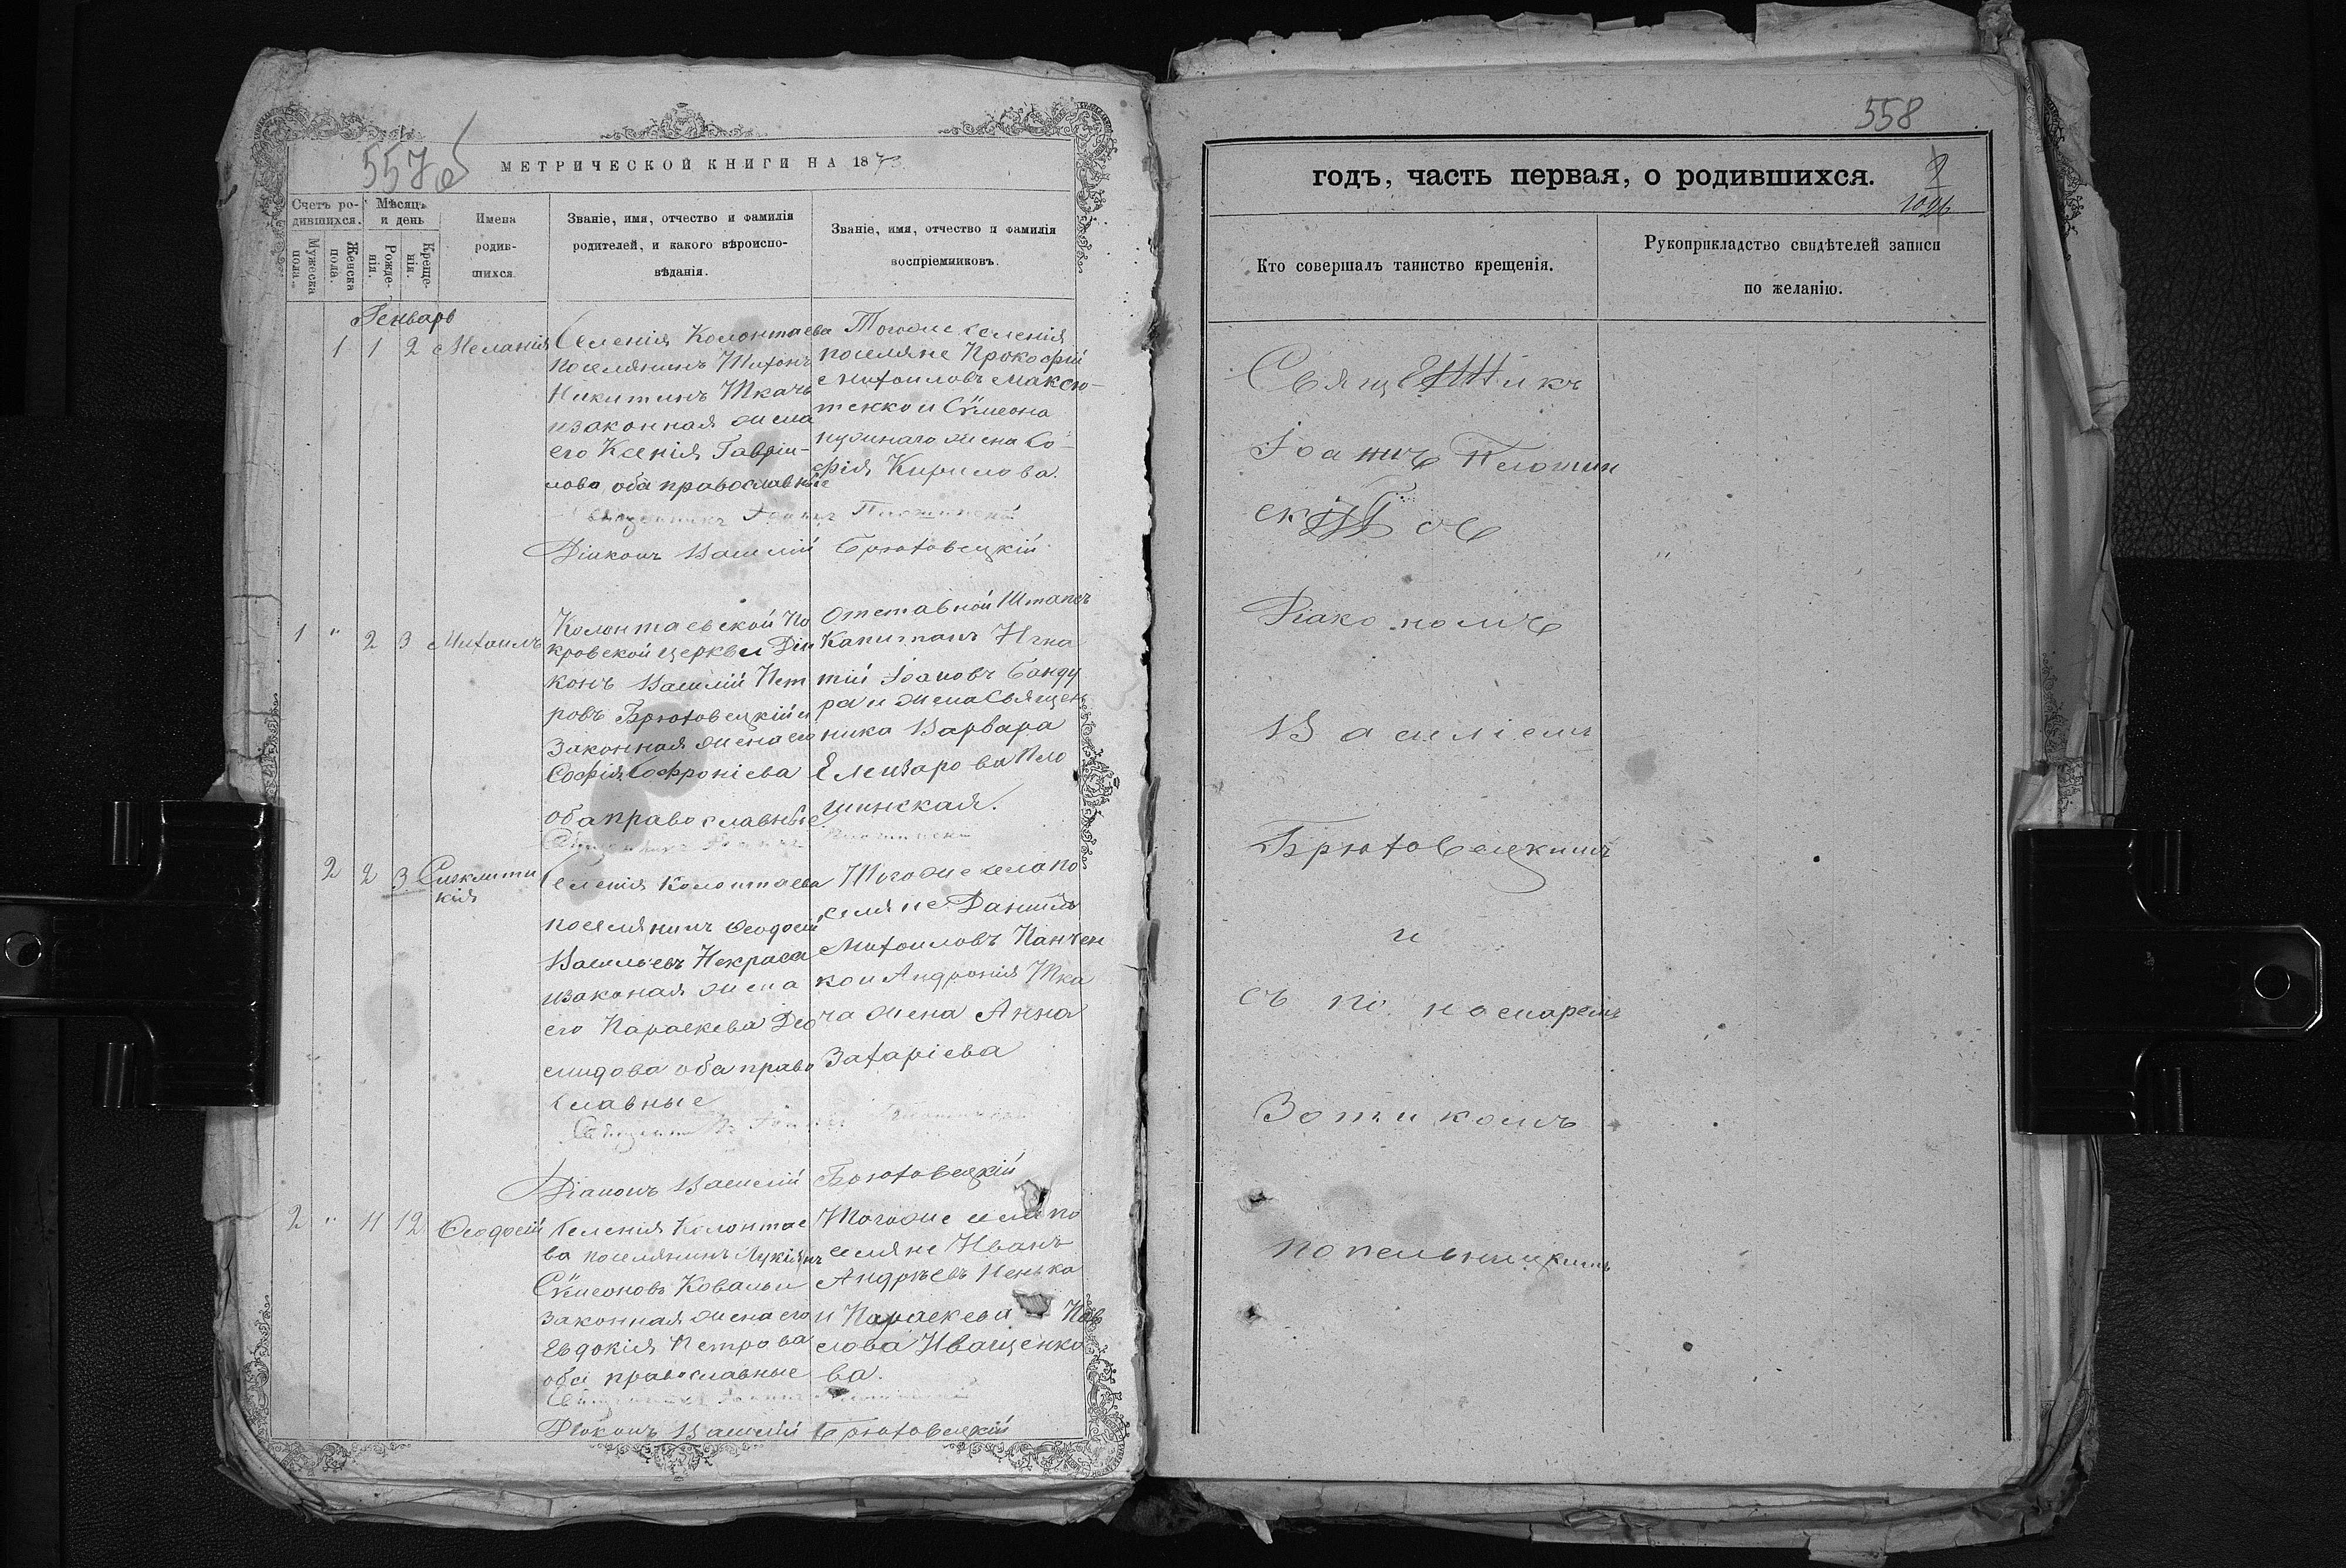 557об
МЕТРИЧЕСКОЙ КНИГИ НА 1873
Счетъ ро-
дившихся.
Мужеска
пола.
Женска
пола.
Мѣсяцъ
и день
Рожде-
нія.
Креще-
нія.
Имена
родив-
шихся.
Званіе, имя, отчество и фамилія
родителей, и какого вѣроиспо-
вѣданія.
Званіе, имя, отчество и фамилія
воспріемниковъ.
Генварь
1 1 2 Меланія
Селенія Колонтаева
поселянинъ Тихонъ
Никитинъ Ткачь
и законная жена
его Ксенія Гаврiи-
лова оба православные
Тогоже селенія
поселяне Прокофій
Михоиловъ Максю-
тенко и Сѵмеона
жена Со-
фія Кирилова.
Священникъ Іоаннъ Плошинскій
Діаконъ Василій Брюховецкій
1 " 2 3 Михоилъ
Колонтаевской По
кровской церкви Діа
конъ Василій Пет
ровъ Брюховецкій и
законная жена его
Софія Софроніева
оба православные
Отставной Штапсъ
Капитанъ Игна
тій Іоановъ Банду
ра и жена Священ
ника Варвара
Елеизарова Пло
шинская.
Священникъ Іоаннъ Плошинскій
2 2 3 Синклити
кія
Селенія Колонтаева
поселянинъ Ѳеодосій
Васильевъ Некраса
и законая жена
его Параскева Део
мидова оба право
славные
Тогоже села по
селяне Даниилъ
Михоиловъ Панчен
ко и Андронія Тка
ча жена Анна
Захаріева
Священникъ Іоаннъ Плошинскій
Діаконъ Василій Брюховецкій
2 " 11 12 Ѳеодосій
Селенія Колонтае
ва поселянинъ Лукіянъ
Сѵмеоновъ Коваль и
законная жена его
Евдокія Петрова
оба православные
Тогоже села по
селяне Иванъ
Андреевъ Пенька
и Параскева Пав
лова Иващенко
ва.
Священникъ Іоаннъ Плошинскій
Діаконъ Василій Брюховецкій
558
годъ, часть первая, о родившихся.
2
Кто совершалъ таинство крещенія.
Рукоприкладство свидѣтелей записи
по желанію.
Священникъ
Іоаннъ Плошин
скій съ
"
Діакономъ
Василіемъ
Брюховецкимъ
и
съ по номаремъ
Зотикомъ
Попельницкимъ